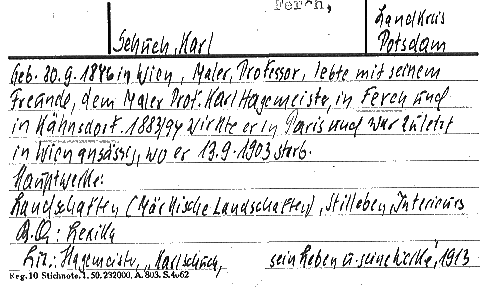 Ferch,
Landkreis
Schuch, Karl Potsdam
Geb. 30.9.1846 in Wien, Maler, Professor, lebte mit seinem
Freunde, dem Maler Prof. Karl Hagemeister, in Ferch und
in Kähnsdorf. 1883/94 wirkte er in Paris und war zuletzt
in Wien ansässig, wo er 13.9.1903 starb.
Hauptwerke:
Landschaften (Märkische Landschaften), Stilleben, Interieurs
B.Q.: Lexika
Lit.: Hagemeister, "Karl Schuch, sein Leben u. seine Werke", 1913
Reg. 10 Stichnote. 1. 50. 232000, A. 803. S. 4062